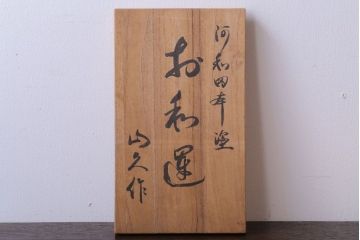 河和田本塗
お和運
山久作